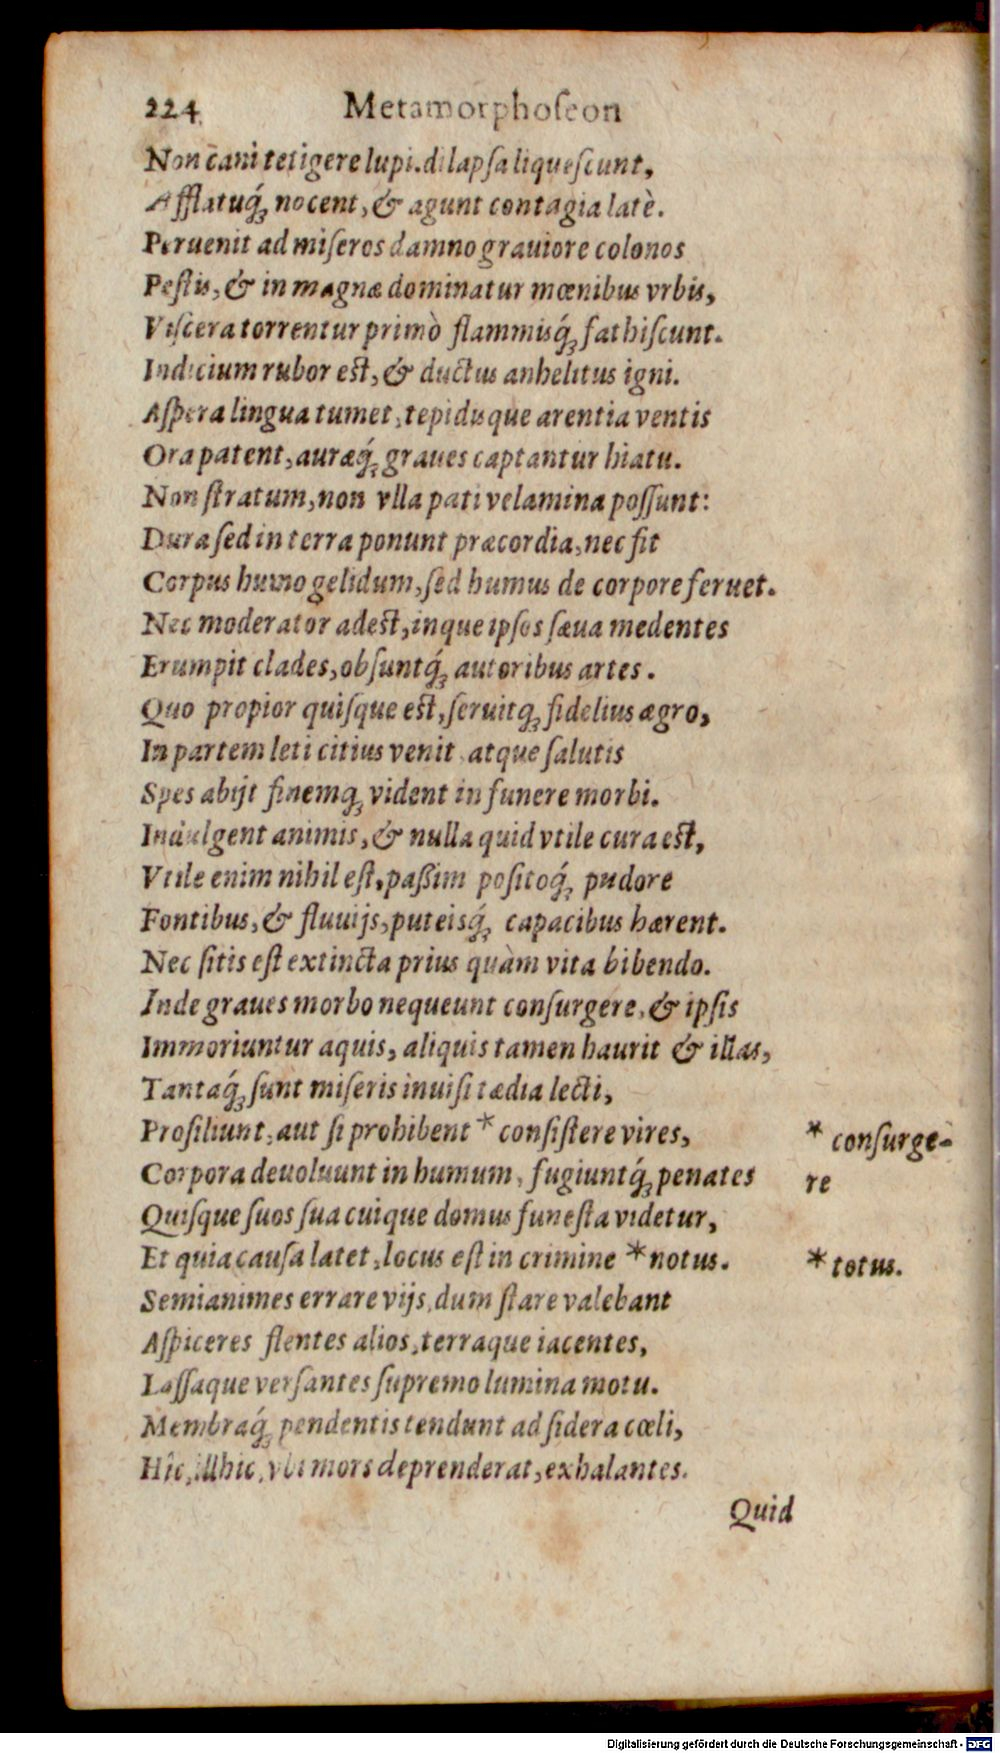 224 Metamorphoſeon
Non cani tetigere lupi. dilapſa liqueſcunt,
Afflatuq́ꝫ nocent, & agunt contagia latè.
Peruenit ad miſeros damno grauiore colonos
Peſtis, & in magnæ dominatur mœnibus vrbis,
Viſcera torrentur primò flammisq́ꝫ fathiſcunt.
Indicium rubor eſt, & ductus anhelitus igni.
Aſpera lingua tumet, tepidisque arentia ventis
Ora patent, auræq́ꝫ graues captantur hiatu.
Non ſtratum, non vlla pati velamina poſſunt:
Dura ſed in terra ponunt præcordia, nec fit
Corpus humo gelidum, ſed humus de corpore feruet.
Nec moderator adeſt, inque ipſos ſæua medentes
Erumpit clades, obſuntq́ꝫ autoribus artes.
Quo propior quiſque eſt, ſeruitqꝫ fidelius ægro,
In partem leti citius venit. atque ſalutis
Spes abijt finemqꝫ vident in funere morbi.
Indulgent animis, & nulla quid vtile cura eſt,
Vtile enim nihil eſt, paßim poſitoq́ꝫ pudore
Fontibus, & fluuijs, puteisq́ꝫ capacibus hærent.
Nec ſitis eſt extincta prius quàm vita bibendo.
Inde graues morbo nequeunt conſurgere, & ipſis
Immoriuntur aquis, aliquis tamen haurit & illas,
Tantaq́ꝫ ſunt miſeris inuiſi tædia lecti,
Proſiliunt, aut ſi prohibent * conſiſtere vires,
* conſurge-
Corpora deuoluunt in humum, fugiuntq́ꝫ penates
re
Quiſque ſuos ſua cuique domus funeſta videtur,
Et quia cauſa latet, locus eſt in crimine * notus.
* totus.
Semianimes errare vijs, dum ſtare valebant
Aſpiceres flentes alios, terraque iacentes,
Laſſaque verſantes ſupremo lumina motu.
Membraq́ꝫ pendentis tendunt ad ſidera cœli,
Hîc, illhic, vbi mors deprenderat, exhalantes.
Quid
Digitalisierung gefördert durch die Deutsche Forschungsgemeinschaft - DFG